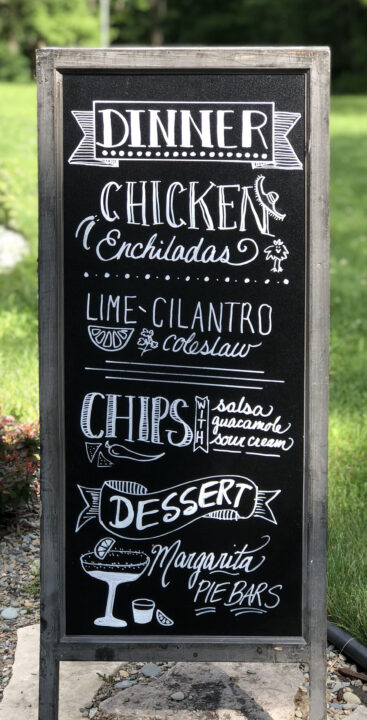 DINNER
CHICKEN
Enchiladas
LIME-CILANTRO
Coleslaw
CHIPS WITH salsa
guacamole
sour cream
DESSERT
Margarita
PIE BARS